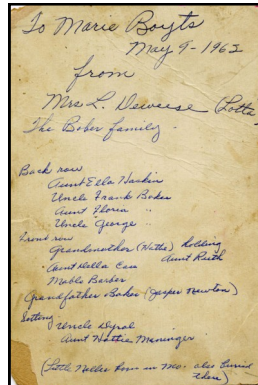 To Marie Boyts
May 9-1962
from
Mrs L. Deweese (Lotta)
The Baker family
Back row
Aunt Ella Haskin
Uncle Frank Baker
Aunt Floria "
Uncle George "
Front row
Grandmother (Hattie) holding
Aunt Ruth
Aunt Della Cau
Mable Barber
Grandfather Baker (Jasper Newton)
Sitting
Uncle Dyral
Aunt Hattie Meninger
(Little Nellie born in Mo. also buried
there)